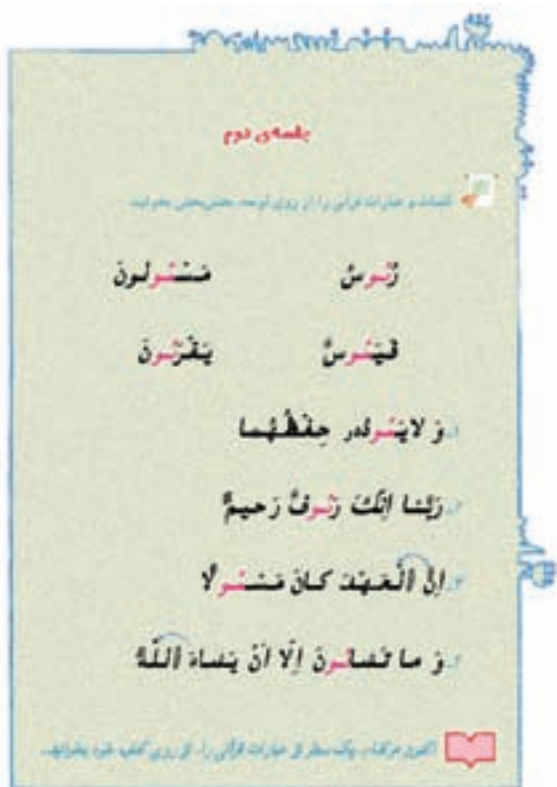 جلسه‌ی دوم
کلمات و عبارات قرآنی را از روی لوحه، بخش‌بخش بخوانید.
رُئوسُ مَسئولونَ
فَیَئوسٌ یَقرَئونَ
۱. وَ لا یَئودُهو حِفظُهُما
۲. رَبَّنا اِنَّکَ رَئوفٌ رَحیمٌ
۳. اِنَّ الْعَهْدَ کانَ مَسئولًا
۴. وَ ما تَشائونَ اِلّا اَنْ یَشاءَ اللّهُ
اکنون هرکدام، یک سطر از عبارات قرآنی را، از روی کتاب خود بخوانید.